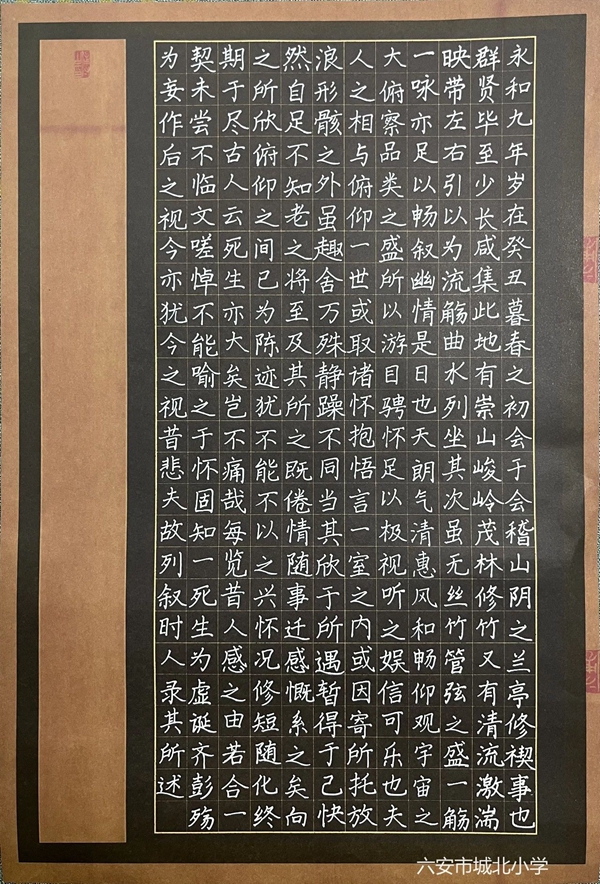 永和九年岁在癸丑暮春之初会于会稽山阴之兰亭修禊事也
群贤毕至少长咸集此地有崇山峻岭茂林修竹又有清流激湍
映带左右引以为流觞曲水列坐其次虽无丝竹管弦之盛一觞
一咏亦足以畅叙幽情是日也天朗气清惠风和畅仰观宇宙之
大俯察品类之盛所以游目骋怀足以极视听之娱信可乐也夫
人之相与俯仰一世或取诸怀抱悟言一室之内或因寄所托放
浪形骸之外虽趣舍万殊静躁不同当其欣于所遇暂得于己快
然自足不知老之将至及其所之既倦情随事迁感慨系之矣向
之所欣俯仰之间已为陈迹犹不能不以之兴怀况修短随化终
期于尽古人云死生亦大矣岂不痛哉每览昔人感之由若合一
契未尝不临文嗟悼不能喻之于怀固知一死生为虚诞齐彭殇
为妄作后之视今亦犹今之视昔悲夫故列叙时人录其所述
六安市城北小学